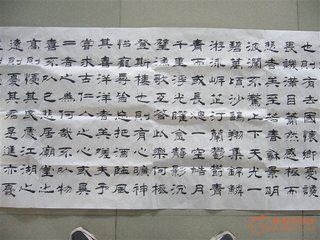 也則有去國懷鄉憂讒
畏譏滿目蕭然感極而
悲者矣至若春和景明
波瀾不驚上下天光一
碧萬頃沙鷗翔集錦鱗
游泳岸芷汀蘭郁郁青
青而或長煙一空皓月
千里浮光躍金靜影沉
璧漁歌互答此樂何極
登斯樓也則有心曠神
怡寵辱偕忘把酒臨風
其喜洋洋者矣嗟夫予
嘗求古仁人之心或異
二者之為何哉不以物
喜不以己悲居廟堂之
高則憂其民處江湖之
遠則憂其君是進亦憂